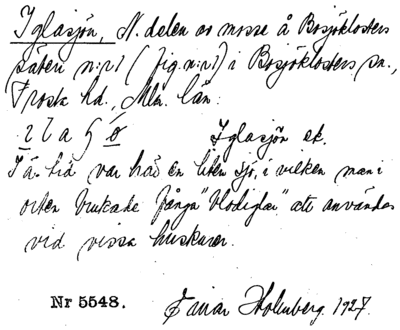 Iglasjön, N. delen av mosse å Bosjöklosters
säteri n:r 1 (fig. n:r 1) i Bosjöklosters sn.,
Frosta hd., Mlm. län:
Iglasjön ek.
I ä. tid var här en liten sjö, i vilken man i
orten brukade fånga "blodiglar" att användas
vid vissa huskurer.
Nr 5548. Ivar Holmberg 1927.